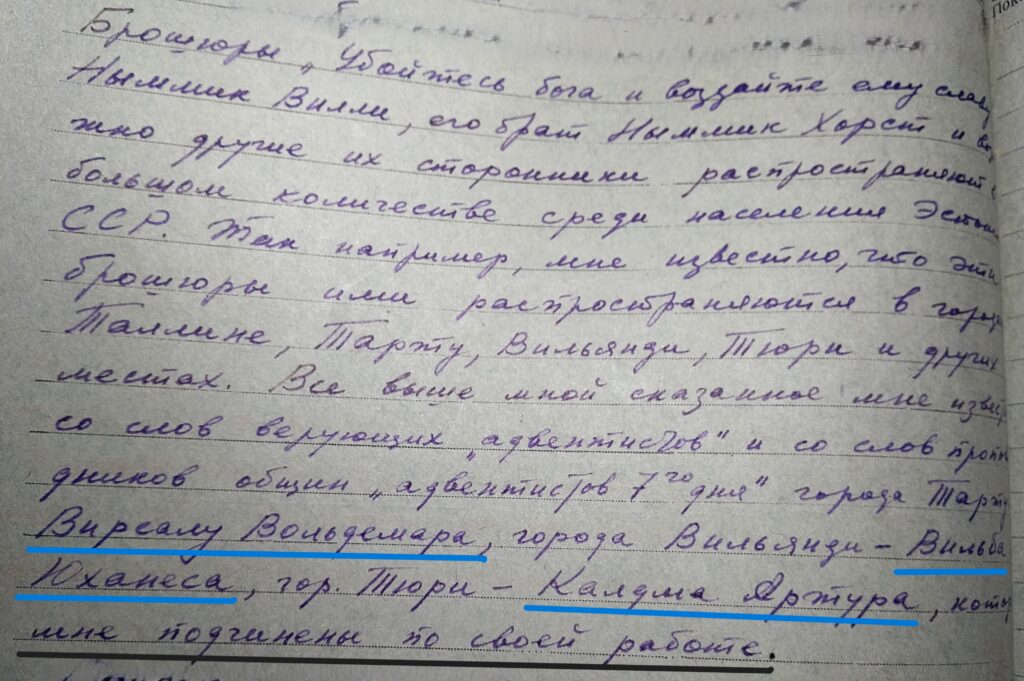 Брошюры „Убойтесь бога и воздайте ему славу
Ныммик Вилли, его брат Ныммик Хорст и воз
жно другие их сторонники распространяют в
большом количестве среди населения Эстон
ССР. Так например, мне известно, что эти
брошюры ими распространяются в город
Таллине, Тарту, Вильянди, Тюри и других
местах. Все выше мной сказанное мне извест
со слов верующих „адвентистов" и со слов пропов
дников общин „адвентистов 7го дня" города Тарту
Вирсалу Вольдемара, города Вильянди – Вильба
Юханеса, гор. Тюри – Калдма Артура, котор
мне подчинены по своей работе.